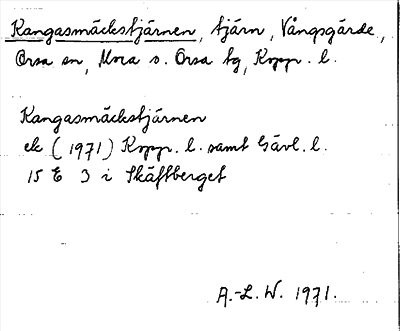 Kangasmäckstjärnen, tjärn, Vångsgärde,
Orsa sn, Mora o. Orsa tg, Kopp. l.
Kangasmäckstjärnen
ek (1971) Kopp. l. samt Gävl. l.
15 E 3 i Skäftberget
A.-L. W. 1971.